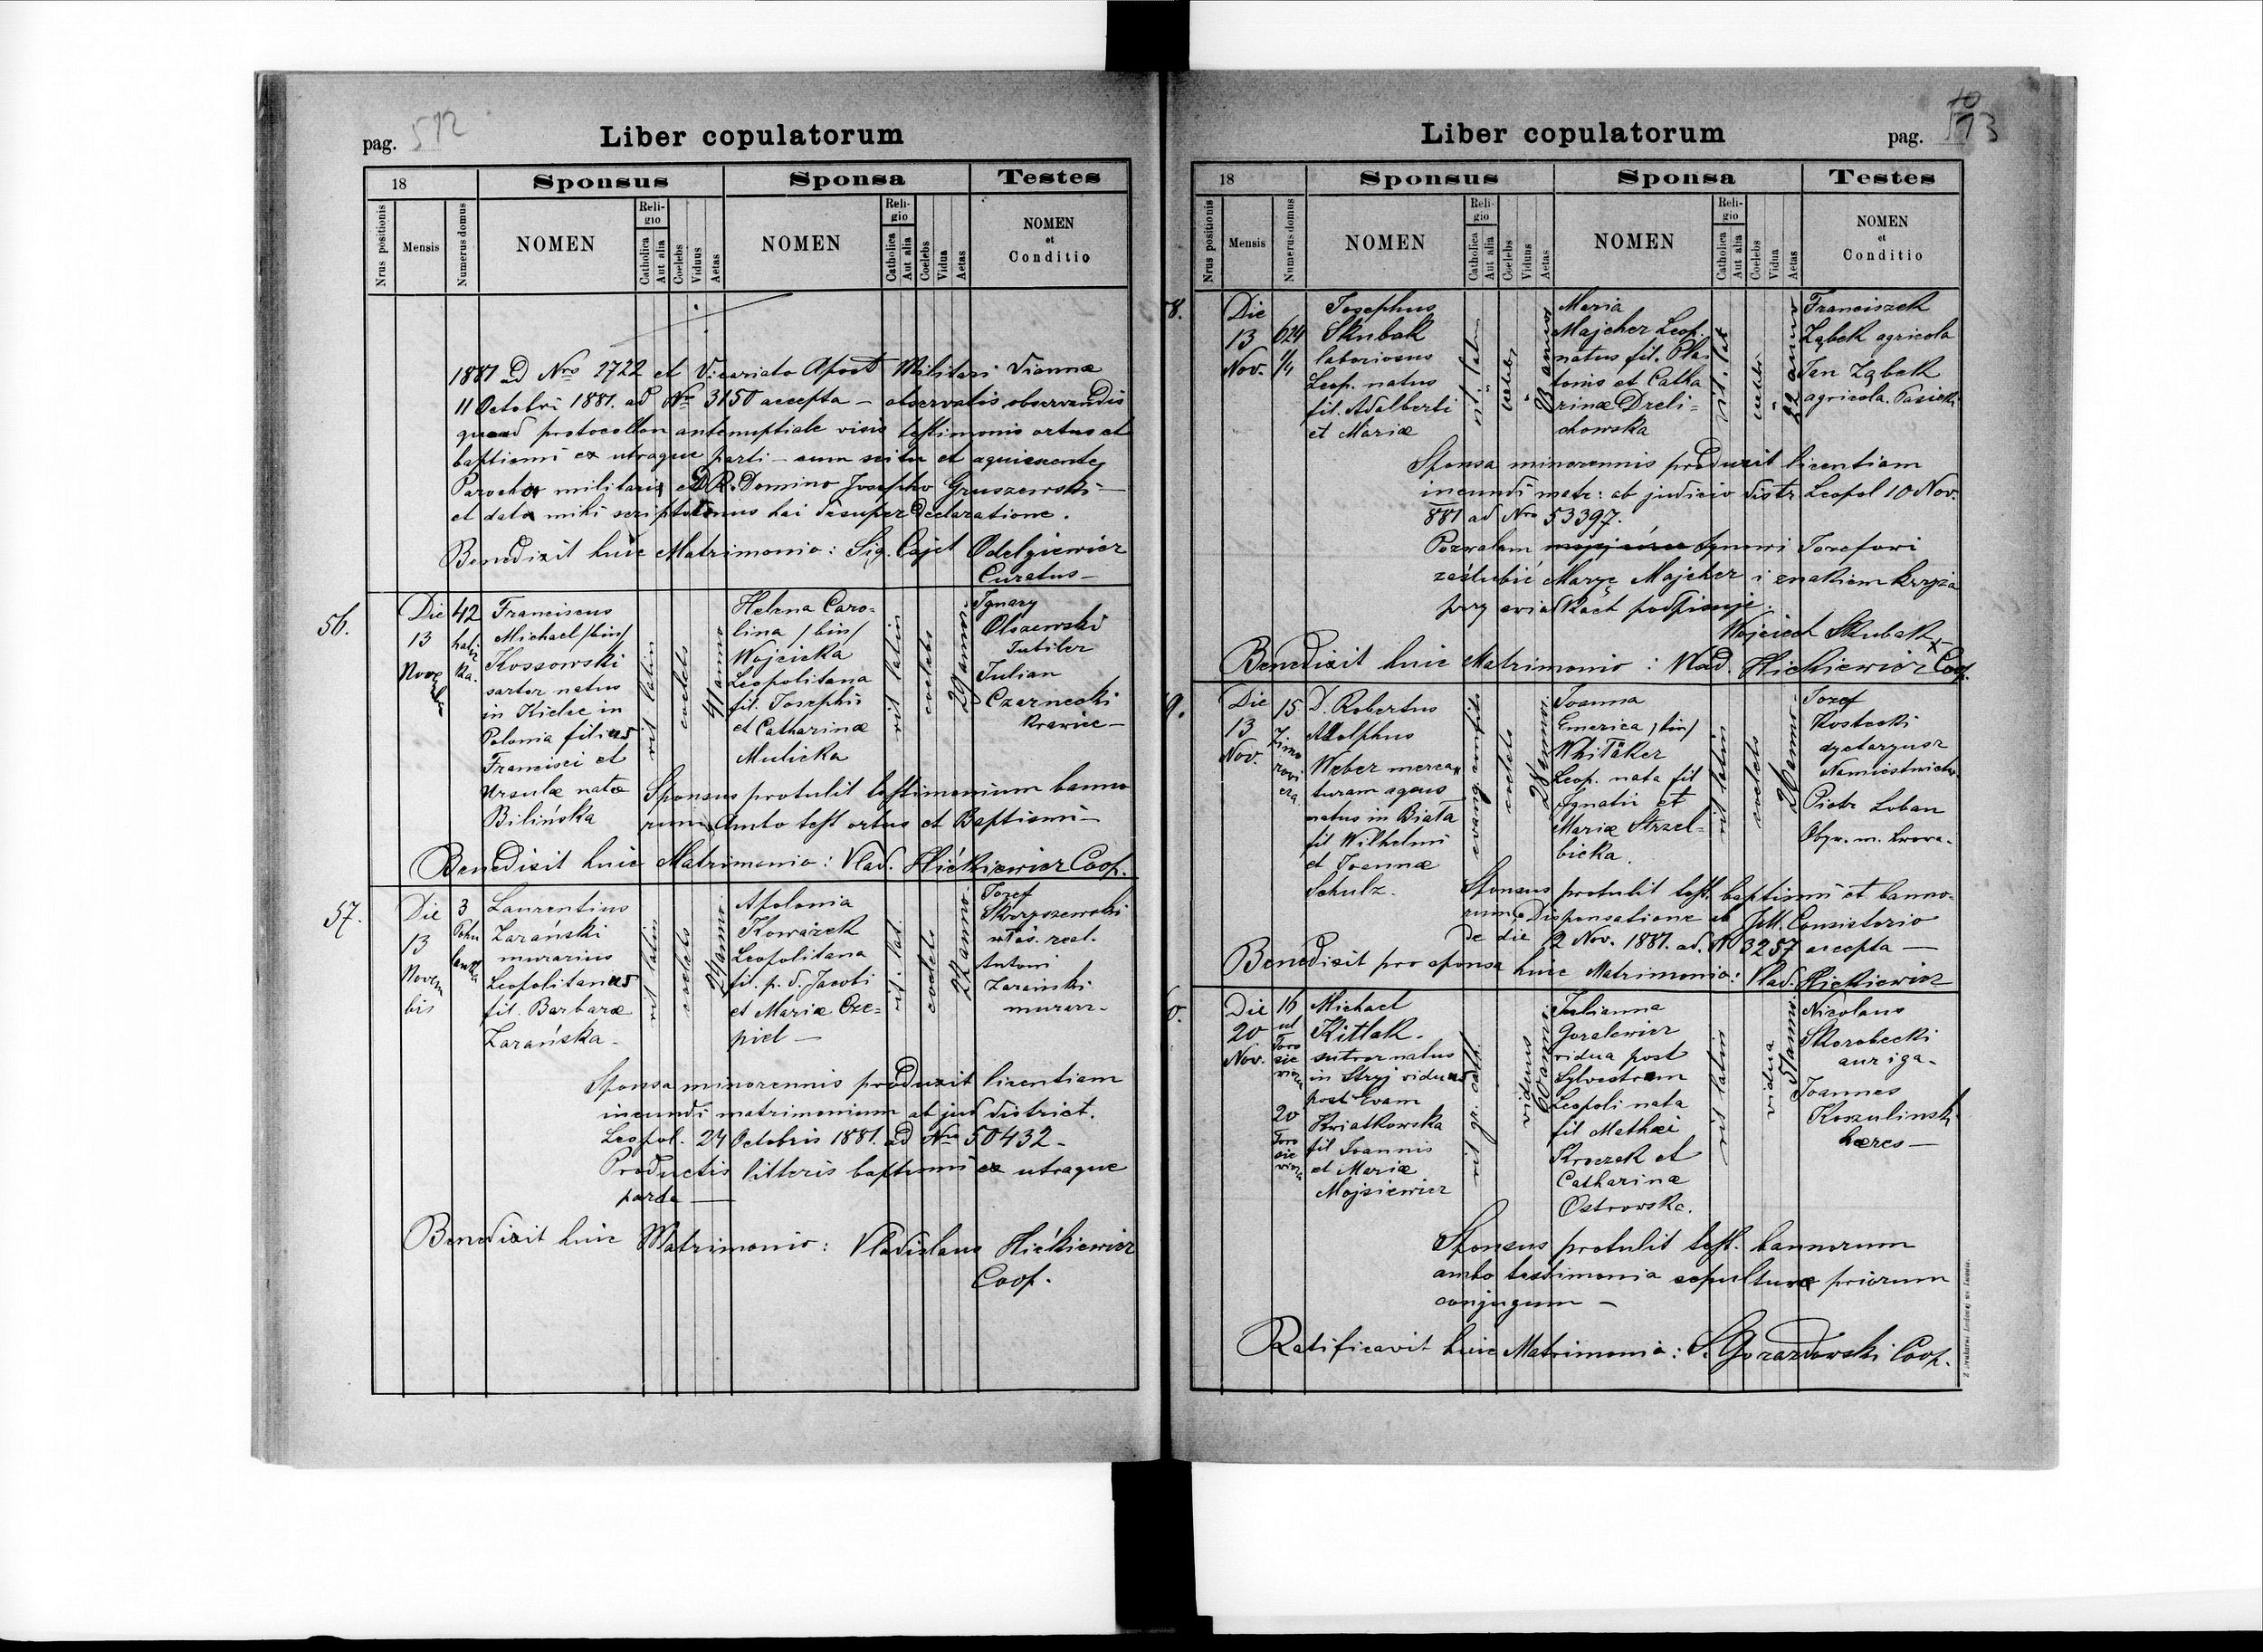 pag. 572
Liber copulatorum
18
Sponsus
Sponsa
Testes
Nrus positionis
Mensis
Numerus domus
NOMEN
Religio
Catholica
Aut alia
Coelebs
Viduus
Aetas
NOMEN
Religio
Catholica
Aut alia
Coelebs
Vidua
Aetas
NOMEN
et
Conditio
1881 ad Nro 2722 et Vicariato Apost Militari Viennæ
11 Octobri 1881. ad No 3150 accepta – observatis observandis
quoad protocollon antenuptiale visis testimonis ortus et
baptismi ex utraque parti – cum scitu et
Parocho militaris Domino Josepho Gruszewski –
et dato mihi desuper declaratione.
Benedixit huic Matrimonio: Sig. Cajet Odelgiewicz
Curatus –
56.
Die
13
Nove
42
hali
Ka.
Franciscus
Michael /bin/
Kossowski
sartor natus
in Kielce in
Polonia filius
Francisci et
Ursulæ natæ
Bilińska
rit latin
coelebs
41 anno
Helena Caro=
lina /bin/
Wojcicka
Leopolitana
fil. Josephi
et Catharinæ
Mulicka
rit latin
coelebs
29 anno
Ignacy
Olszewski
Jubiler
Julian
Czarnecki
Krawiec –
Sponsus protulit testimonium banno
rum, Ambo test ortus et Baptismi –
Benedixit huic Matrimonio: Vlad. Hićkiewicz Coop.
57.
Die
13
Novem
bis
3
Laurentius
Zarański
murarius
Leopolitanus
fil. Barbaræ
Zarańska –
rit latin
coelebs
24 anno
Apolonia
Kowarzek
Leopolitana
fil. p. d. Jacobi
et Mariæ Cze=
piel –
rit. lat.
coelebs
22 anno
Jozef
Skrzyszewski
właś. real.
Antoni
Zarański
murarz –
Sponsa minorennis produxit licentiam
incundi matrimonium ab jud district.
Leopol. 24 Octobris 1881. ad Nro 50432 –
Productis litteris baptismi ex utraque
parte –
Benedixit huic Matrimonio: Vladislaus Hićkiewicz
Coop.
pag. 573
Liber copulatorum
18
Sponsus
Sponsa
Testes
Nrus positionis
Mensis
Numerus domus
NOMEN
Religio
Catholica
Aut alia
Coelebs
Viduus
Aetas
NOMEN
Religio
Catholica
Aut alia
Coelebs
Vidua
Aetas
NOMEN
et
Conditio
8.
Die
13
Nov.
624
1/4
Josephus
Skubak
laboriosus
Leop. natus
fil. Adalberti
et Mariæ
rit latin
coelebs
23 annos
Maria
Majcher Leop.
natus fil. Pla
tonis et Catha
rinæ Dreli=
chowska
rit. lat
coelebs
22 anno
Franciszek
Ząbek agricola
Jan Ząbek
agricola. Pasieki
Sponsa minorennis produxit licentiam
incundi matr: ab judicio distr Leopol 10 Nov.
881 ad Nro 53397.
Pozwalam synowi Jozefowi
zaślubić Maryę Majcher i znakiem krzyża
przy świadkach podpisuję.
Wojciech Skubak
Benedixit huic Matrimonio: Vlad. Hićkiewicz Coop.
9.
Die
13
Nov.
15
Zimo
rowi
cza
D. Robertus
Adolphus
Weber mercan
turam agens
natus in Biała
fil Wilhelmi
et Joannæ
Schulz.
evang. confess
coelebs
28 annos
Joanna
Emerica /bin/
Whitaker
Leop. nata fil
Ignatii et
Mariæ Strzel=
bicka.
rit latin
coelebs
26 anno –
Jozef
Kostecki
dyetaryusz
Namiestnictw.
Piotr Loban
Obyw. m. Lwowa.
Sponsus protulit test. baptismi et banno=
rum. Dispensatione ab Jllt. Consistorio
de die 2 Nov. 1881. ad. N 3257 accepta –
Benedixit pro sponsa huic Matrimonio: Vlad. Hićkiewicz
0.
Die
20
Nov.
16
ul
Toro
sie
wicza
20
Toro
sie
wicza
Michael
Kitlak.
sutror natus
in Stryj viduus
post Evam
Kwiatkowska
fil Joannis
et Mariæ
Mojsiewicz
rit gr. cath.
viduus
60 annos
Julianna
Goralewicz
vidua post
Sylvestrum
Leopoli nata
fil Mathæi
Kroczek et
Catharinæ
Ostrowska.
rit latin
vidua
51 anno
Nicolaus
Skorobecki
auriga –
Joannes
Koszulinski
hæres –
Sponsus protulit test. bannorum
ambo testimonia sepulturæ priorum
conjugum –
Ratificavit huic Matrimonio: S. Gorazdowski Coop.